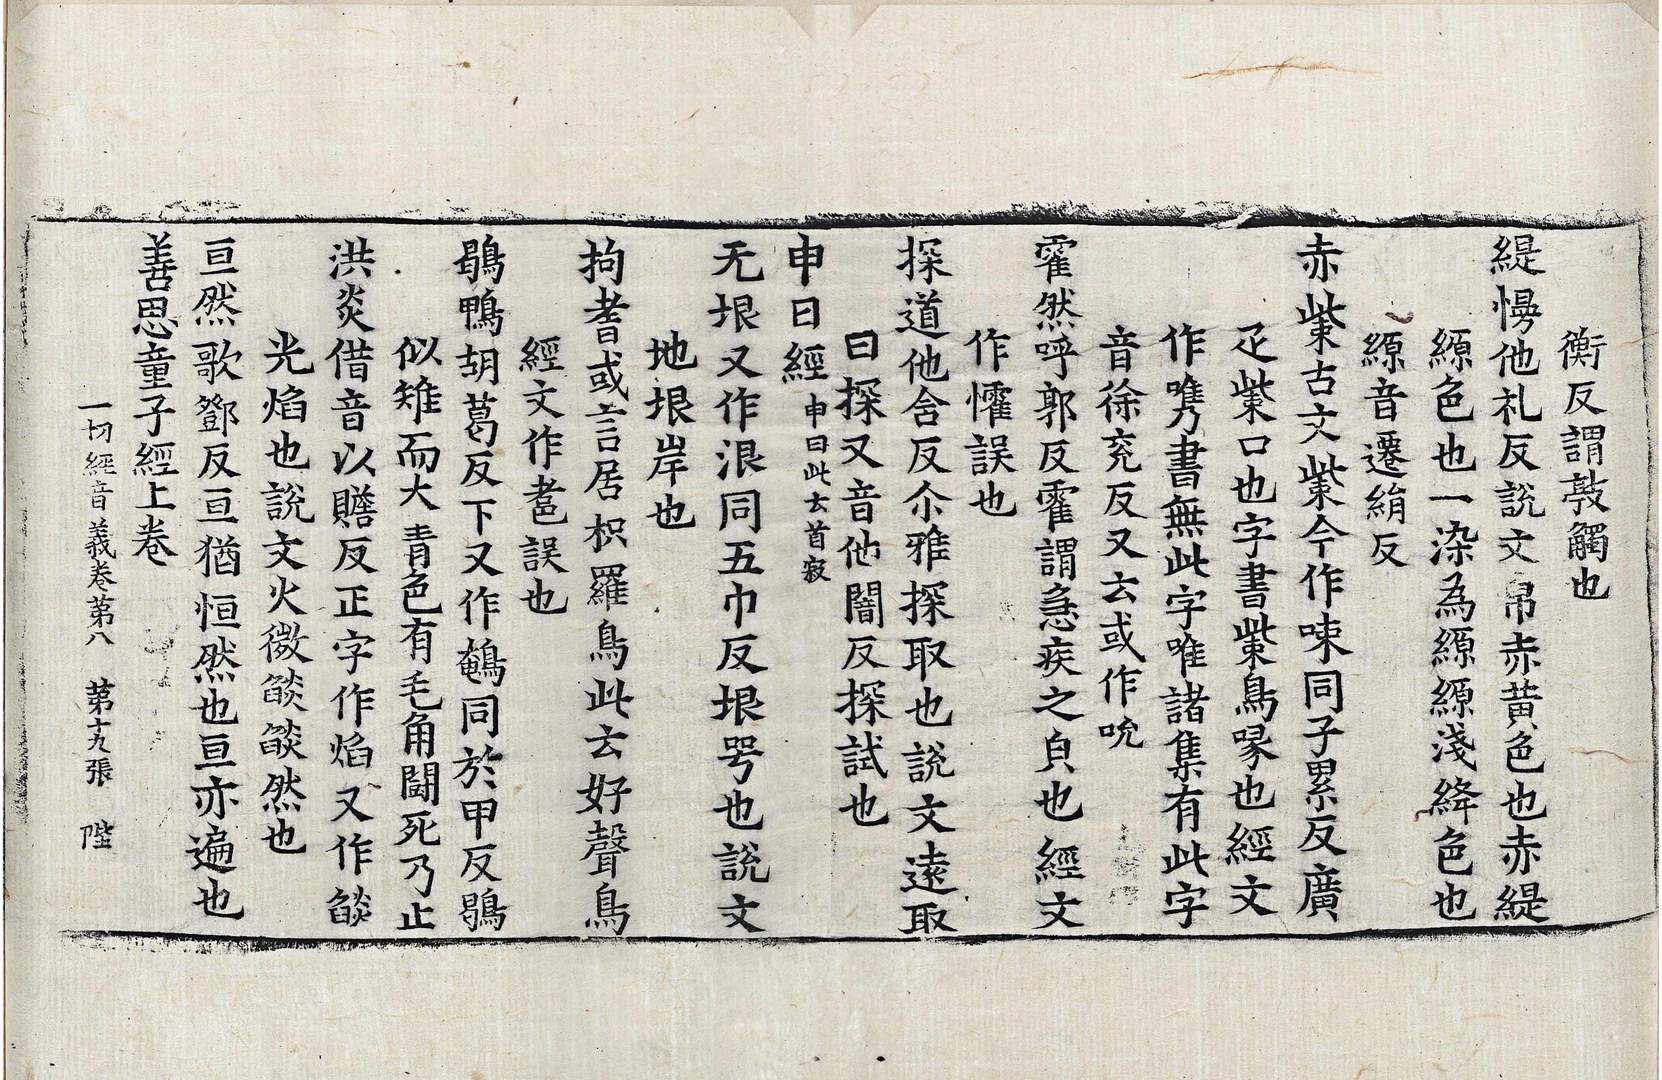 衡反謂敲觸也
緹慢他礼反說文帛赤黄色也赤緹
縓色也一染為縓縓淺絳色也
縓音遷絹反
赤紫古文紫今作㖨同子累反廣
疋紫口也字書紫鳥喙也經文
作噰書無此字唯諸集有此字
音徐兖反又云或作吮
霍然呼郭反霍謂急疾之皃也經文
作懽誤也
探道他含反尒雅探取也說文遠取
曰探又音他闇反探試也
申日經申曰此云首寂
无垠又作泿同五巾反垠咢也說文
地垠岸也
拘耆或言居枳羅鳥此云好聲鳥
經文作耆誤也
鶡鴨胡葛反下又作鵪同於甲反鶡
似雉而大青色有毛角鬪死乃止
洪炎借音以贍反正字作焰又作燄
光焰也說文火微燄燄然也
亘然歌鄧反亘猶恒然也亘亦遍也
善思童子經上卷
一切經音義卷第八 第十九張 陛